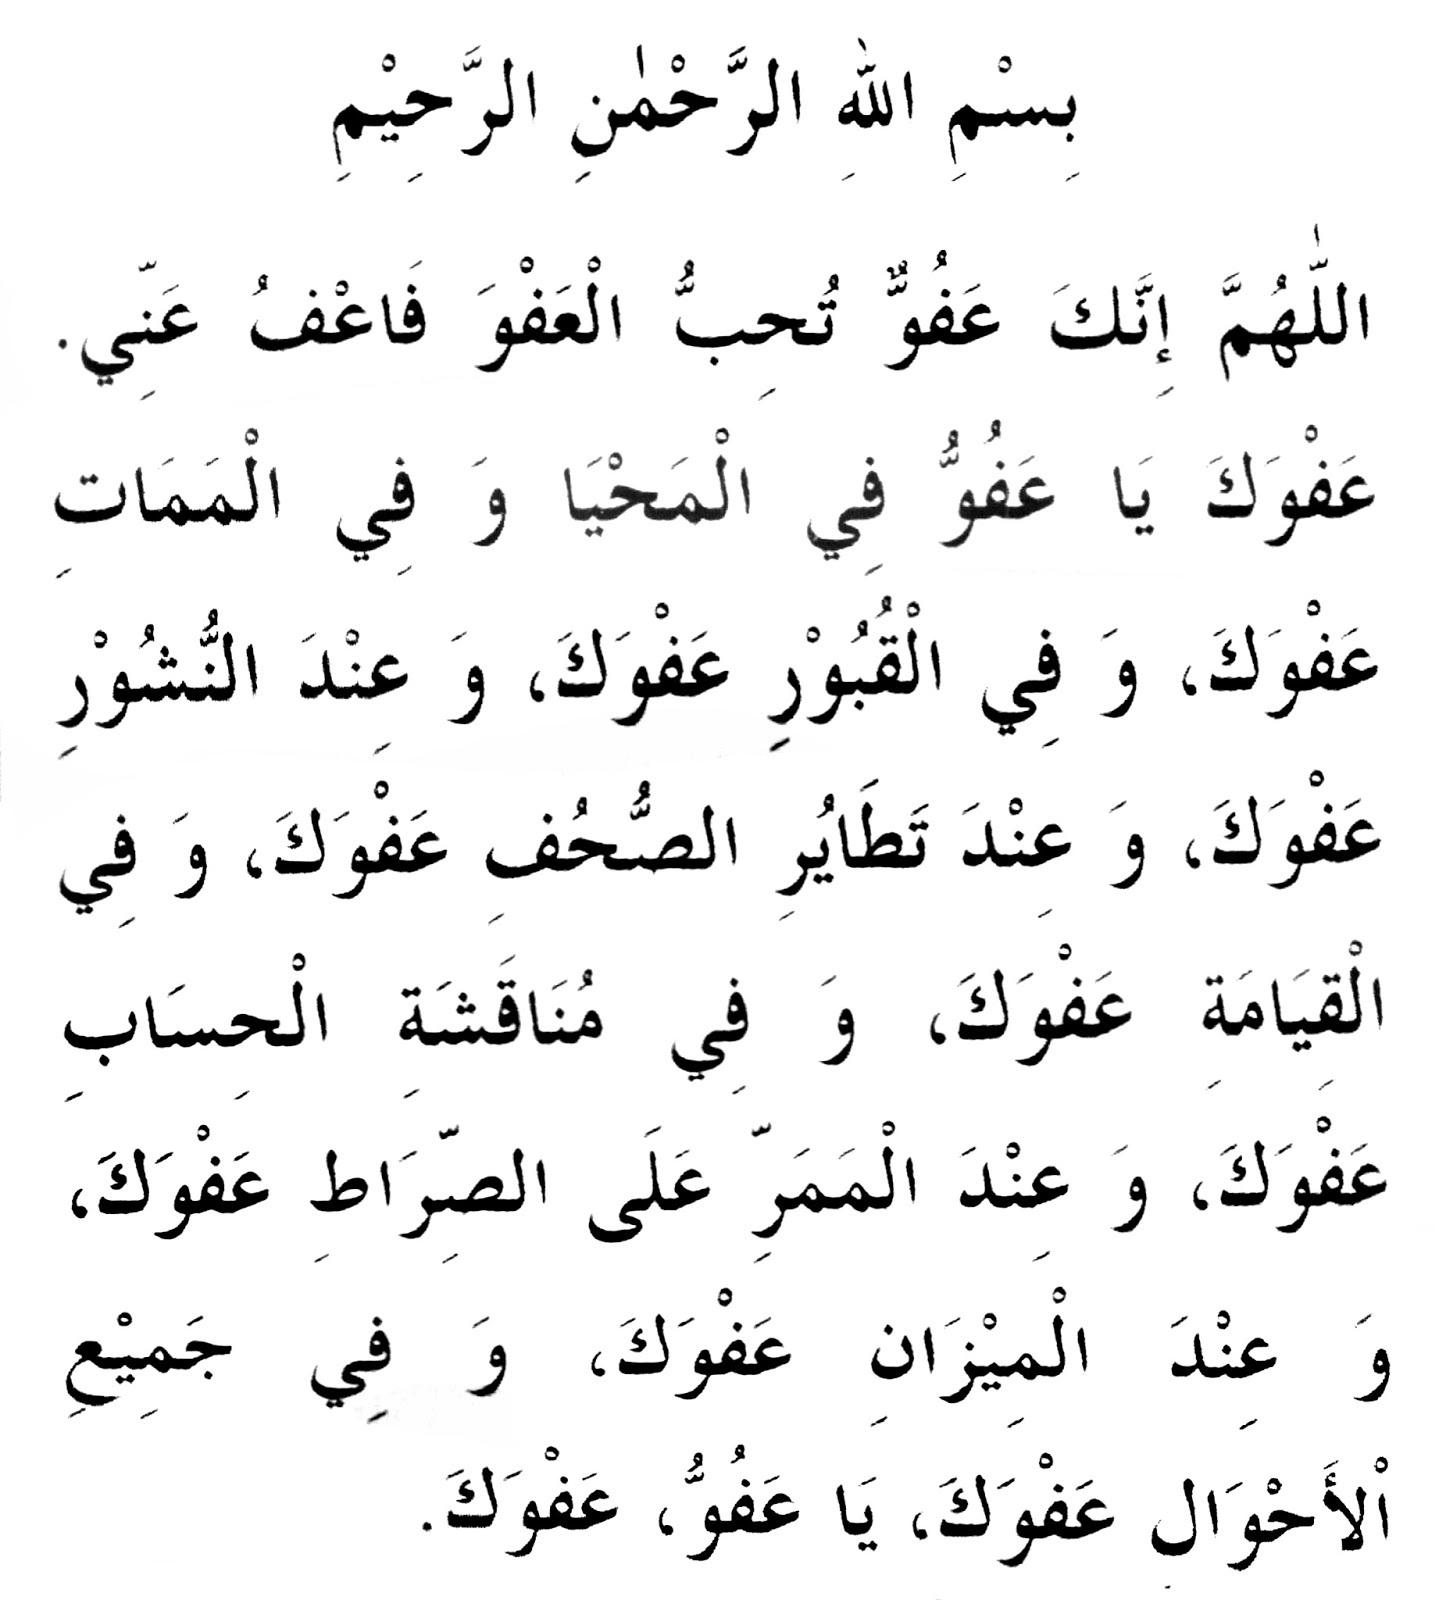 بِسْمِ اللهِ الرَّحْمٰنِ الرَّحِيْمِ
اللّٰهُمَّ إِنَّكَ عَفُوٌّ تُحِبُّ الْعَفْوَ فَاعْفُ عَنِّي.
عَفْوَكَ يَا عَفُوُّ فِي الْمَحْيَا وَ فِي الْمَمَاتِ
عَفْوَكَ، وَ فِي الْقُبُوْرِ عَفْوَكَ، وَ عِنْدَ النُّشُوْرِ
عَفْوَكَ، وَ عِنْدَ تَطَايُرِ الصُّحُفِ عَفْوَكَ، وَ فِي
الْقِيَامَةِ عَفْوَكَ، وَ فِي مُنَاقَشَةِ الْحِسَابِ
عَفْوَكَ، وَ عِنْدَ الْمَمَرِّ عَلَى الصِّرَاطِ عَفْوَكَ،
وَ عِنْدَ الْمِيْزَانِ عَفْوَكَ، وَ فِي جَمِيْعِ
اْلأَحْوَالِ عَفْوَكَ، يَا عَفُوُّ، عَفْوَكَ.